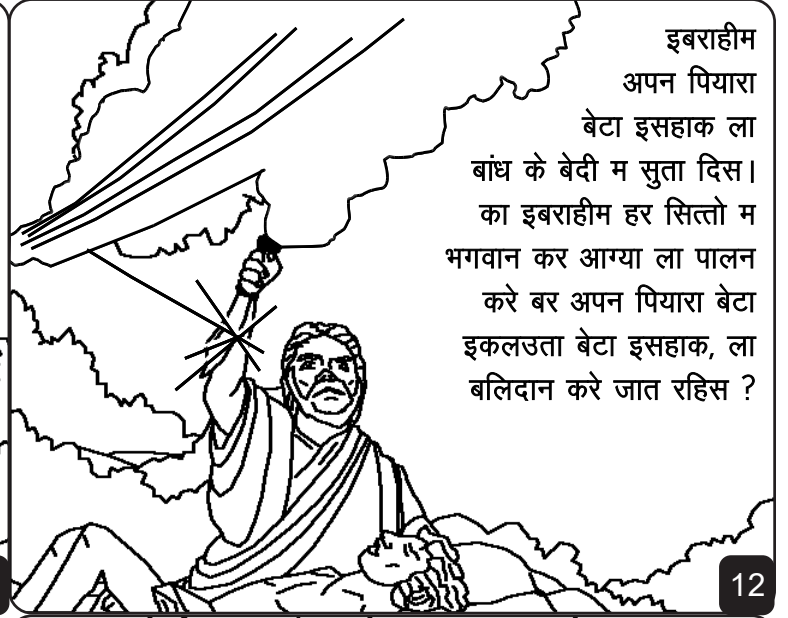 इबराहीम
अपन पियारा
बेटा इसहाक ला
बांध के बेदी म सुता दिस।
का इबराहीम हर सित्तो म
भगवान कर आग्या ला पालन
करे बर अपन पियारा बेटा
इकलउता बेटा इसहाक, ला
बलिदान करे जात रहिस ?
12